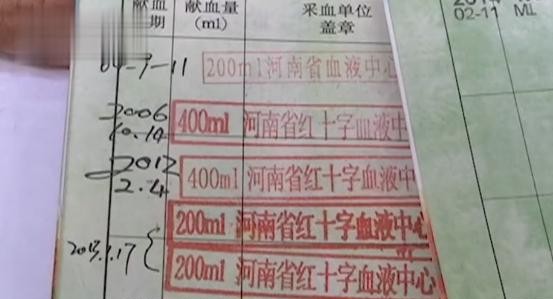 献血
期
献血量
(ml)
采血单位
盖章
200ml河南省血液中心
2006
10.14
400ml 河南省红十字血液中
2012
2.4
400ml 河南省红十字血液中
200ml 河南省红十字血液中心
200ml 河南省红十字血液中心
02-11
ML